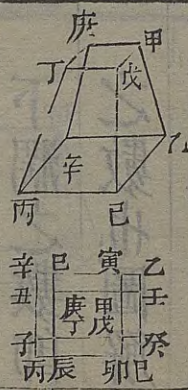 庚 甲
丁 戊
乙
辛
丙 己
辛 巳 寅 乙
丑 庚 甲 壬
丁 戊
子 癸
丙 辰 卯 巳